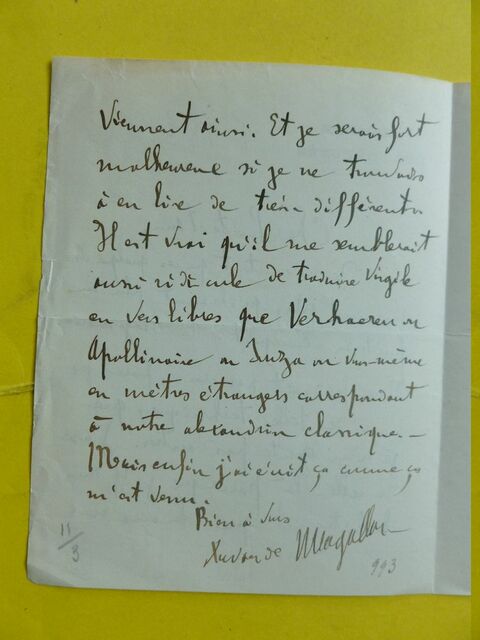 viennent ainsi. Et je serais fort
malheureux si je ne trouvais
à en lire de très différents
Il est vrai qu'il me semblerait
aussi ridicule de traduire Virgile
en vers libres que Verhaeren ou
Apollinaire ou ou vous-même
en mètres étrangers correspondant
à notre alexandrin classique. —
Mais enfin j'ai écrit ça comme ça
m'est venu.
Bien à vous
Xavier de Magallon
11/3
993